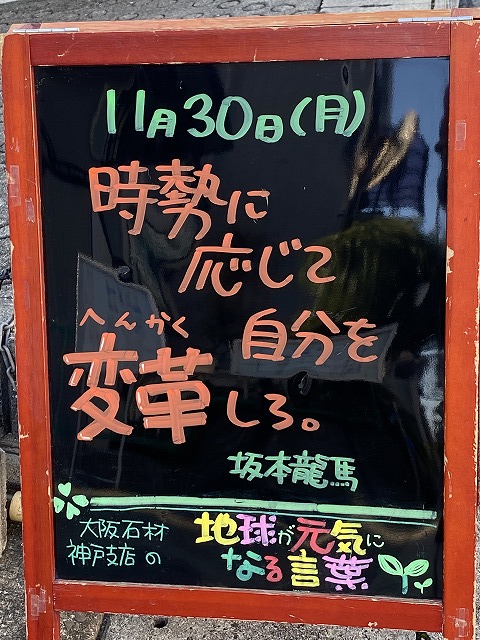 11月30日(月)
時勢に
応じて
自分を
へんかく
変革しろ。
坂本龍馬
大阪石材
神戸支店の
地球が元気に
なる言葉